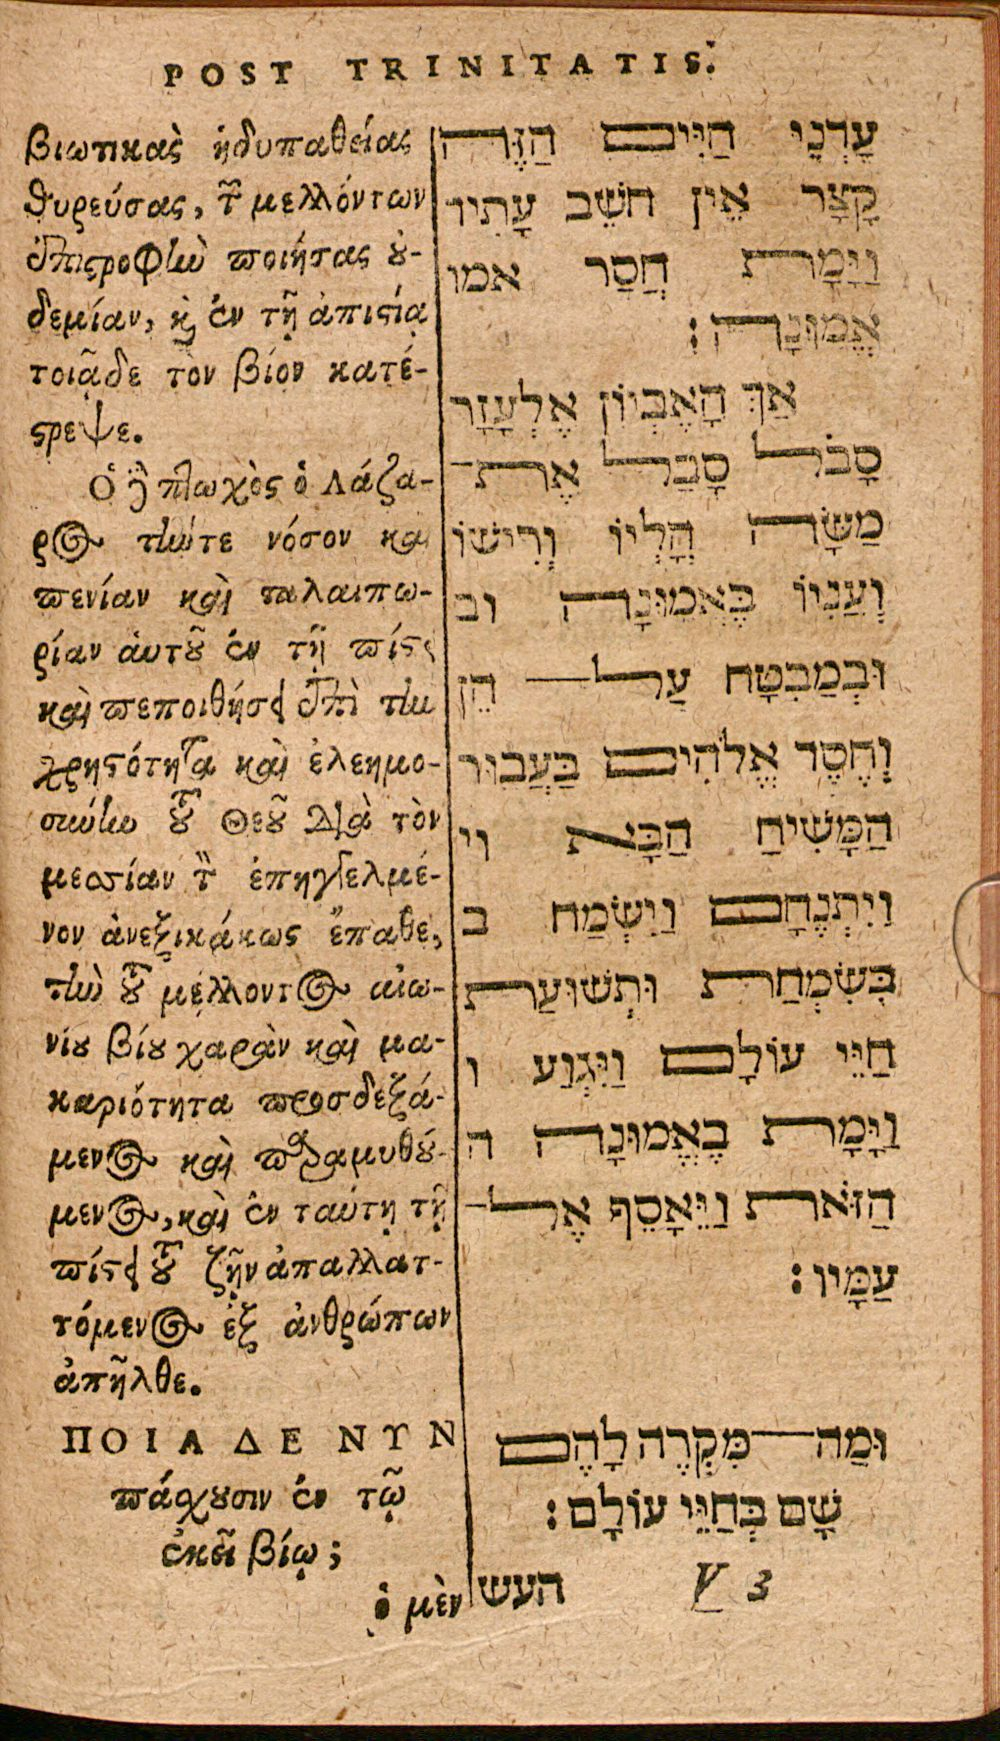 POST TRINITATIS.
βιωτικὰς ἡδυπαθείας
θηρεύσας, τ̃ μελλόντων
ἐπιστροφὴν ποιήσας ȣ̓-
δεμίαν, κ̀ ἐν τῇ ἀπιστίᾳ
τοιᾷδε τὸν βίον κατέ-
στρεψε.
Ὁ ἢ πτωχὸς ὁ Λάζα-
ρος τήν τε νόσον καὶ
πενίαν καὶ ταλαιπω-
ρίαν ἁυτȣ̃ ἐν τῇ πίστει
καὶ πεποιθήσει ἐπὶ τὴν
χρηστότητα καὶ ἐλεημο-
σύνην τȣ̃ Θεȣ̃ διὰ τὸν
μεσσίαν τ̀ ἐπηγγελμέ-
νον ἀνεξικάκως ἔπαθε,
τὴν τȣ̃ μέλλοντος αἰω-
νίȣ βίȣ χαρὰν καὶ μα-
καριότητα προσδεξά-
μενος καὶ παραμυθȣ́-
μενος, καὶ ἐν ταύτῃ τῇ
πίστει τȣ̃ ζῇν ἀπαλλατ-
τόμενος ἐξ ἀνθρώπων
ἀπῆλθε.
ΠΟΙΑ ΔΕ ΝΥΝ
πάσχȣσιν ἐν τῷ
ἐκεῖ βίῳ;
ὁ μὲν
עֶדְנֵי הַחַיִּים הַזֶּה
קָצָר אֵין חֹשֵׁב עָתִיו
וַיָּמָת חֲסַר אמו
אֱמוּנָה:
אַךְ הָאֶבְיוֹן אֶלְעָזָר
סָבֹל סָבַל אֶת־
מַשָּׂה הָלְיוֹ וְרִישׁוֹ
וְעֲנִיוֹ בֶּאֱמוּנָה וב
וּבְמַבְטָח עַל־ הֵן
וָחֶסֶד אֱלֹהִים בַּעֲבוּר
הַמָּשִׁיחַ הַבָּא וי
וַיִּתְנֶחָם וַיִּשְׂמַח ב
בְּשִׂמְחַת וּתְשׁוּעַת
חַיֵּי עוֹלָם וַיִּגְוַע ו
וַיָּמָת בֶּאֱמוּנָה ה
הַזֹּאת וַיֵּאָסֵף אֶל־
עַמָּיו:
וּמַה־מִּקְרֶה לָהֶם
שָׁם בְּחַיֵּי עוֹלָם:
העש
V 3